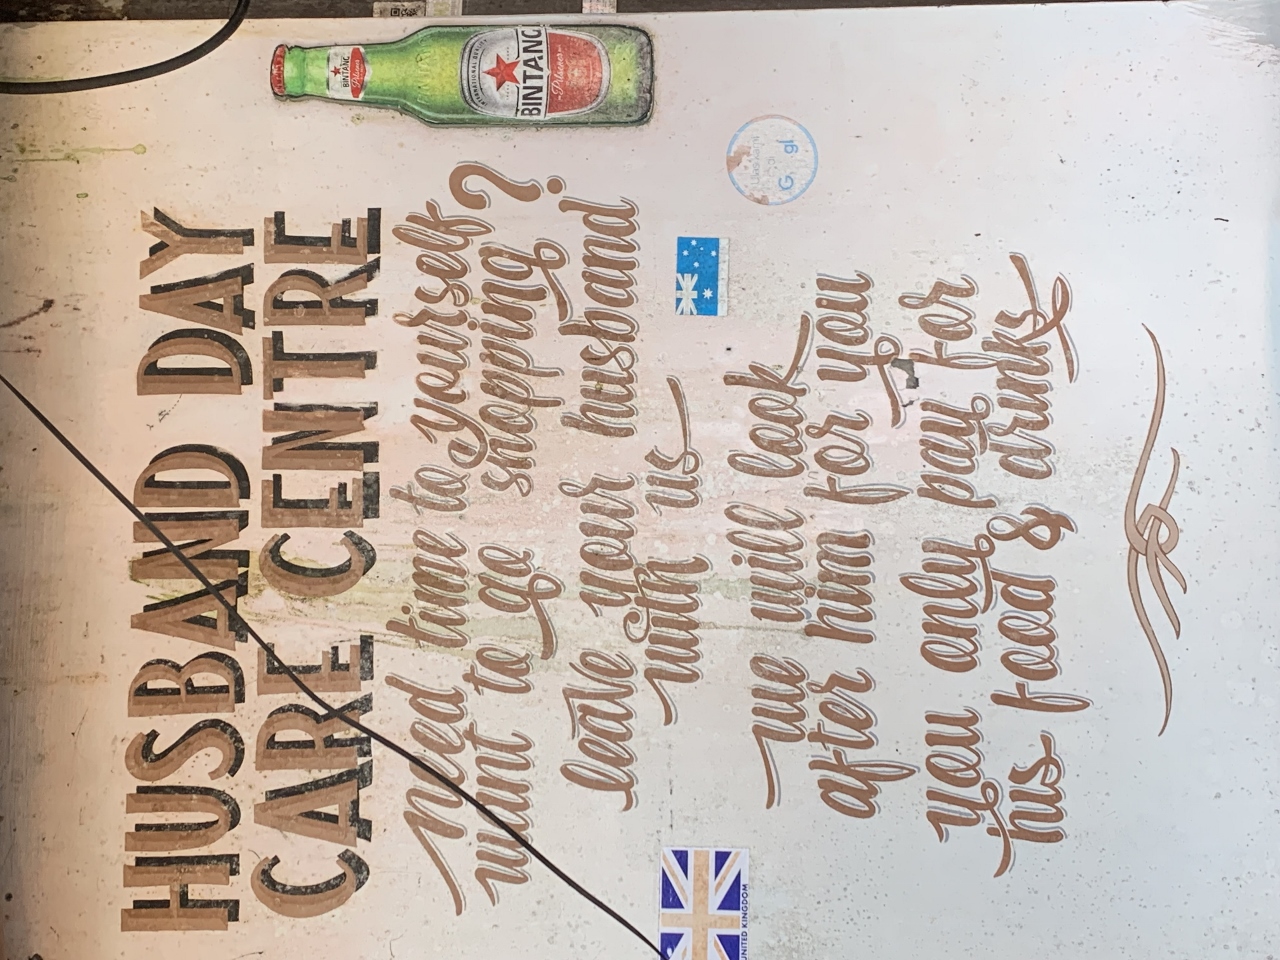 HUSBAND DAY
CARE CENTRE
need time to yourself?
want to go shopping?
leave your husband
with us
we will look
after him for you
you only pay for
his food & drinks
BINTANG
Pilsener
BINTANG
Pilsener
UNITED KINGDOM